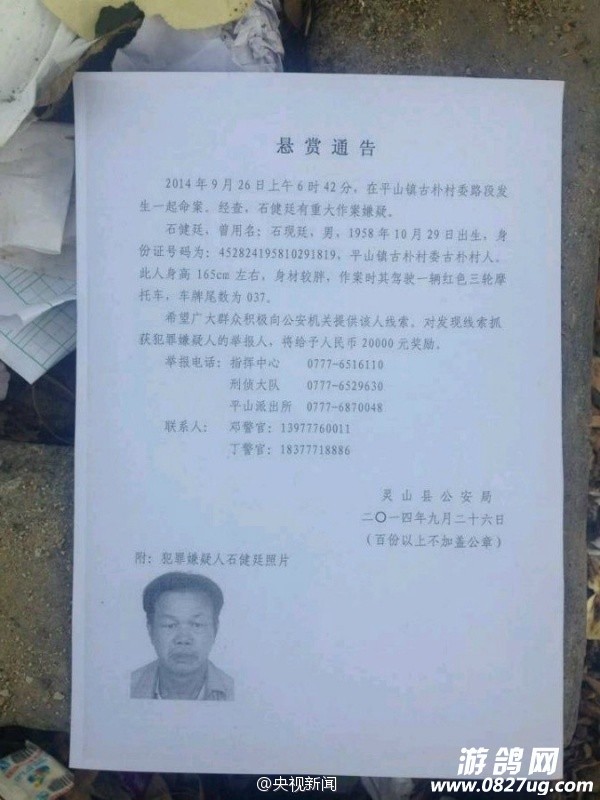 悬赏通告
2014年9月26日上午6时42分，在平山镇古朴村委路段发
生一起命案。经查，石健廷有重大作案嫌疑。
石健廷，曾用名：石现廷，男，1958年10月29日出生，身
份证号码为：452824195810291819，平山镇古朴村委古朴村人。
此人身高165cm左右，身材较胖，作案时其驾驶一辆红色三轮摩
托车，车牌尾数为037。
希望广大群众积极向公安机关提供该人线索。对发现线索抓
获犯罪嫌疑人的举报人，将给予人民币20000元奖励。
举报电话：指挥中心 0777-6516110
刑侦大队 0777-6529630
平山派出所 0777-6870048
联系人：邓警官：13977760011
丁警官：18377718886
灵山县公安局
二〇一四年九月二十六日
（百份以上不加盖公章）
附：犯罪嫌疑人石健廷照片
@央视新闻
游鸽网
www.0827ug.com